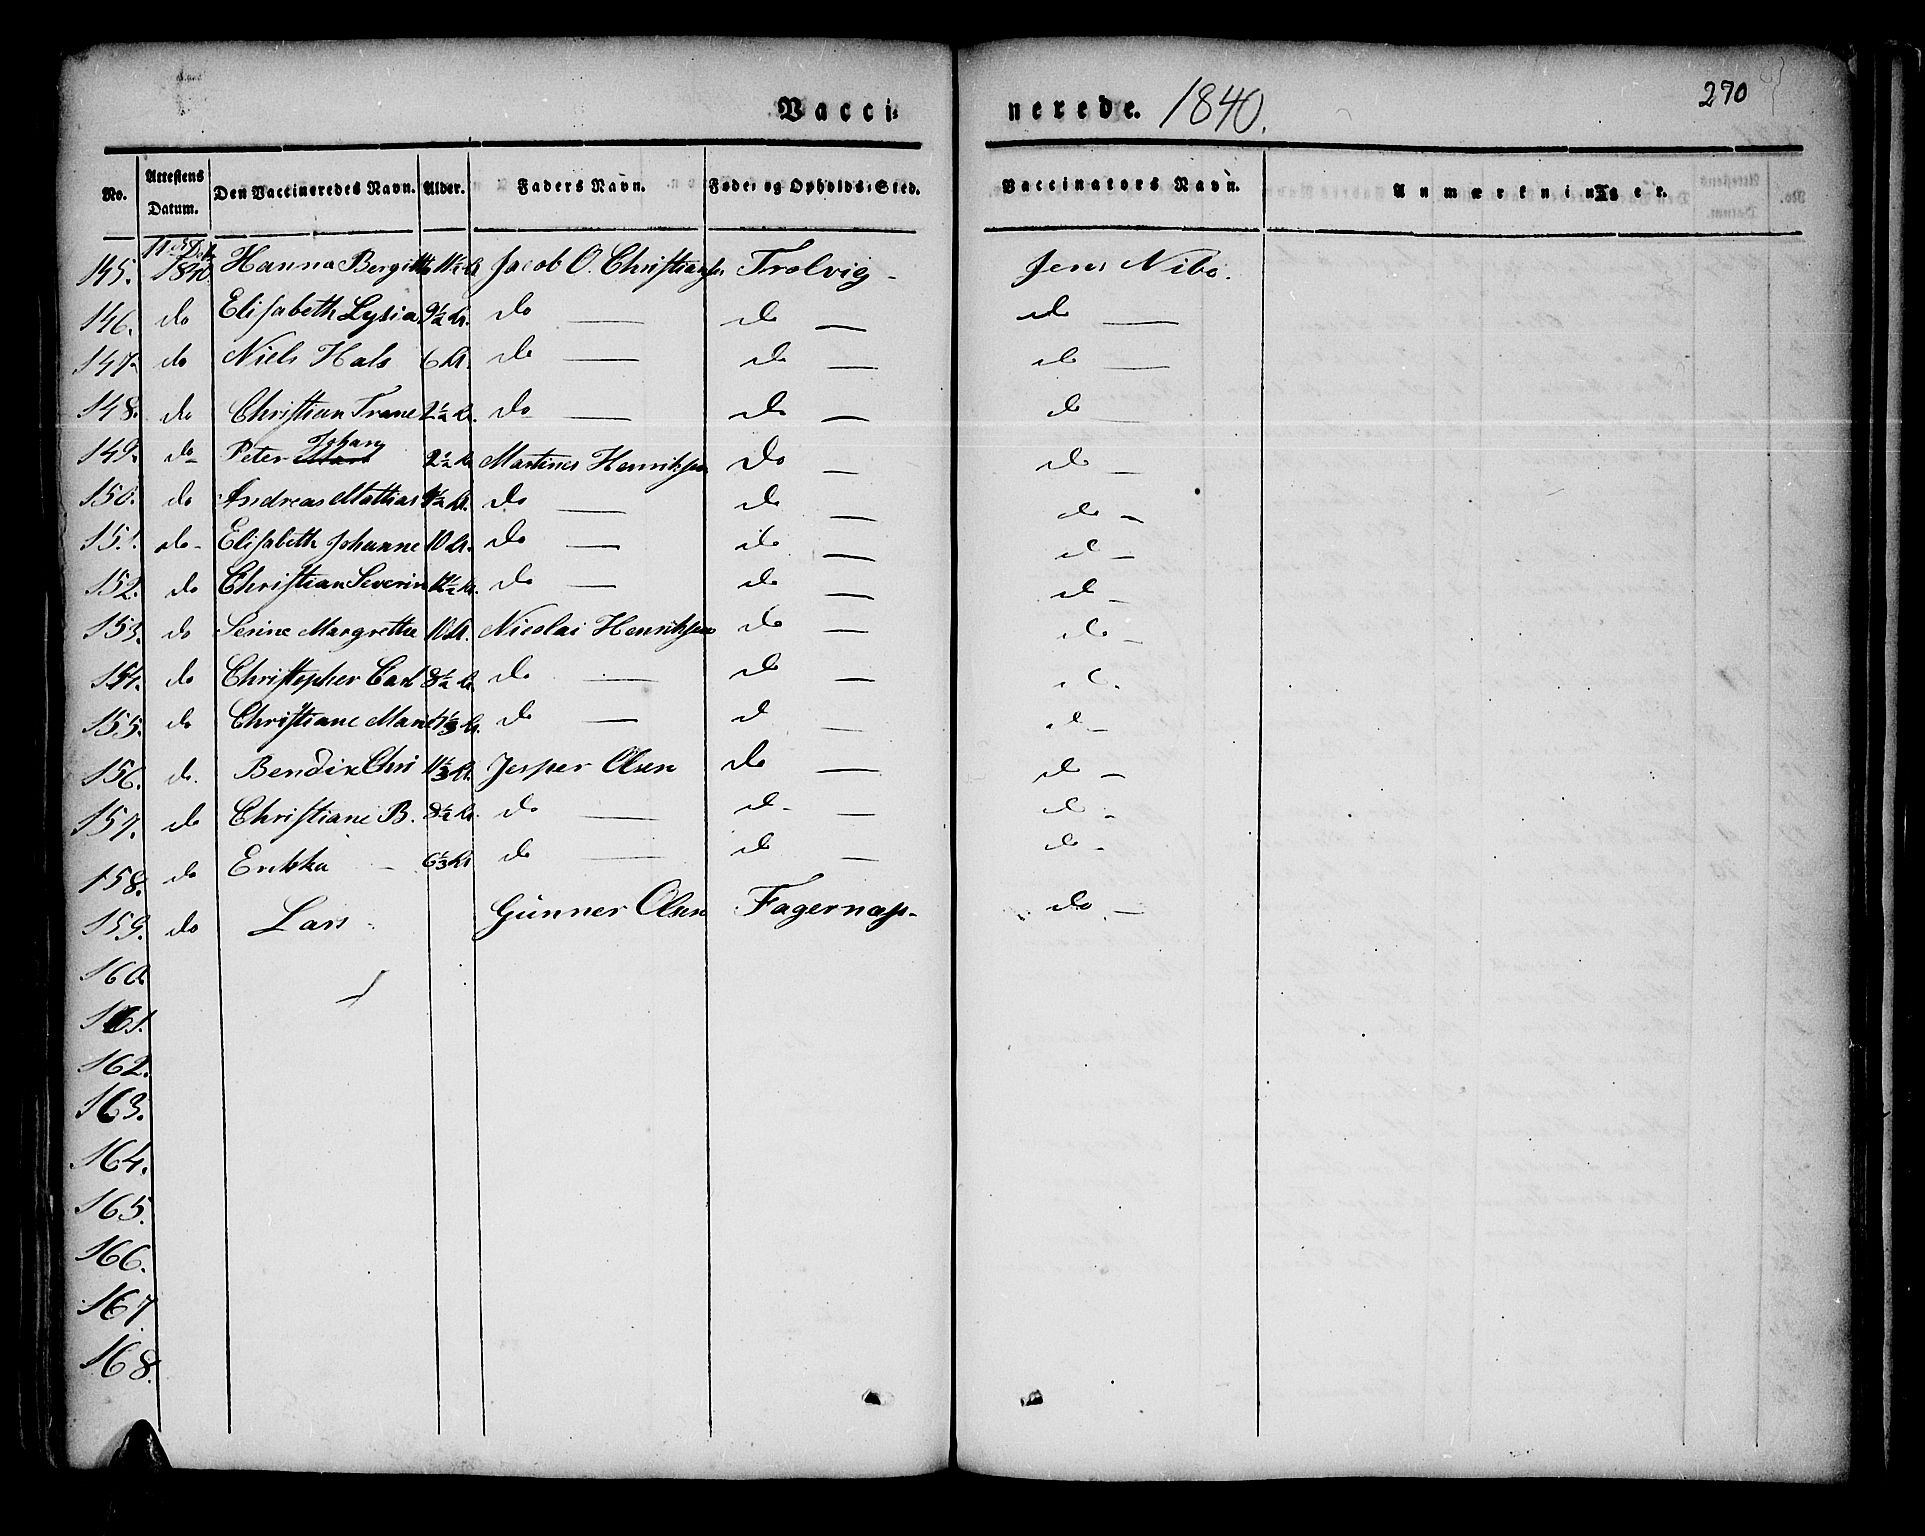 270
Vacci- nerede. 1840.
No. Attestens Datum. Den Vaccineredes Navn. Alder. Faders Navn. Føde- og Opholds-Sted. Vaccinators Navn. Anmærkninger.
145. 11 1840. Hanna Bergitte Jacob O. Christiansen Trolvig - Jens Nibo.
146. do Elisabeth Lysia 9½ do — do — do —
147. do Niels Hals 6 do — do — do —
148. do Christian Trane 2½ do — do — do
149. do Peter Johan 2½ Martines Henriksen do — do —
150. do Andreas Mathias do — do — do —
151. do - Elisabeth Johanne 10 do — do — do —
152. do Christian Severin do — do — do —
153. do Serine Margrethe 10 Nicolai Henriksen do — do —
154. do Christopher Carl 8½ do — do — do.
155. do Christiane do — do — do —
156. do. Bendix Chri Jesper Olsen do — do —
157. do Christiane B. 8½ do — do — do -
158. do 6⅓ do — do — do -
159. do Lars Gunner Olsen Fagernæs- do —
160
161.
162.
163.
164.
165.
166.
167
168.